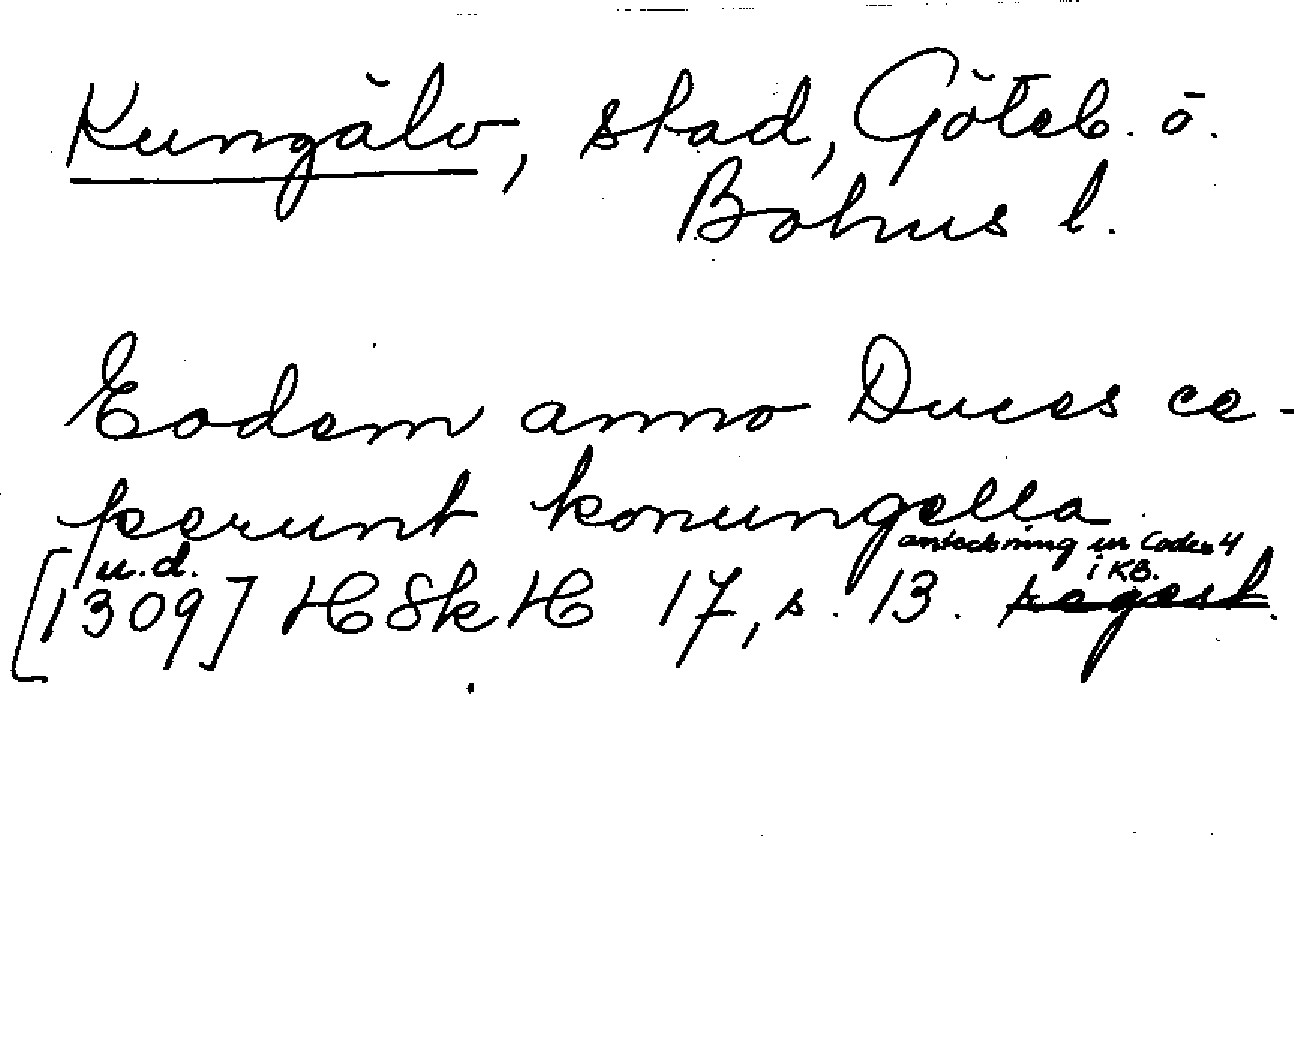 Kungälv, stad, Göteb. o.
Bohus l.
Eodem anno Duces ce-
perunt konungella
anteckning ur Codex 4
i KB.
u.d.
[1309] HSkH 17, s. 13. regest.